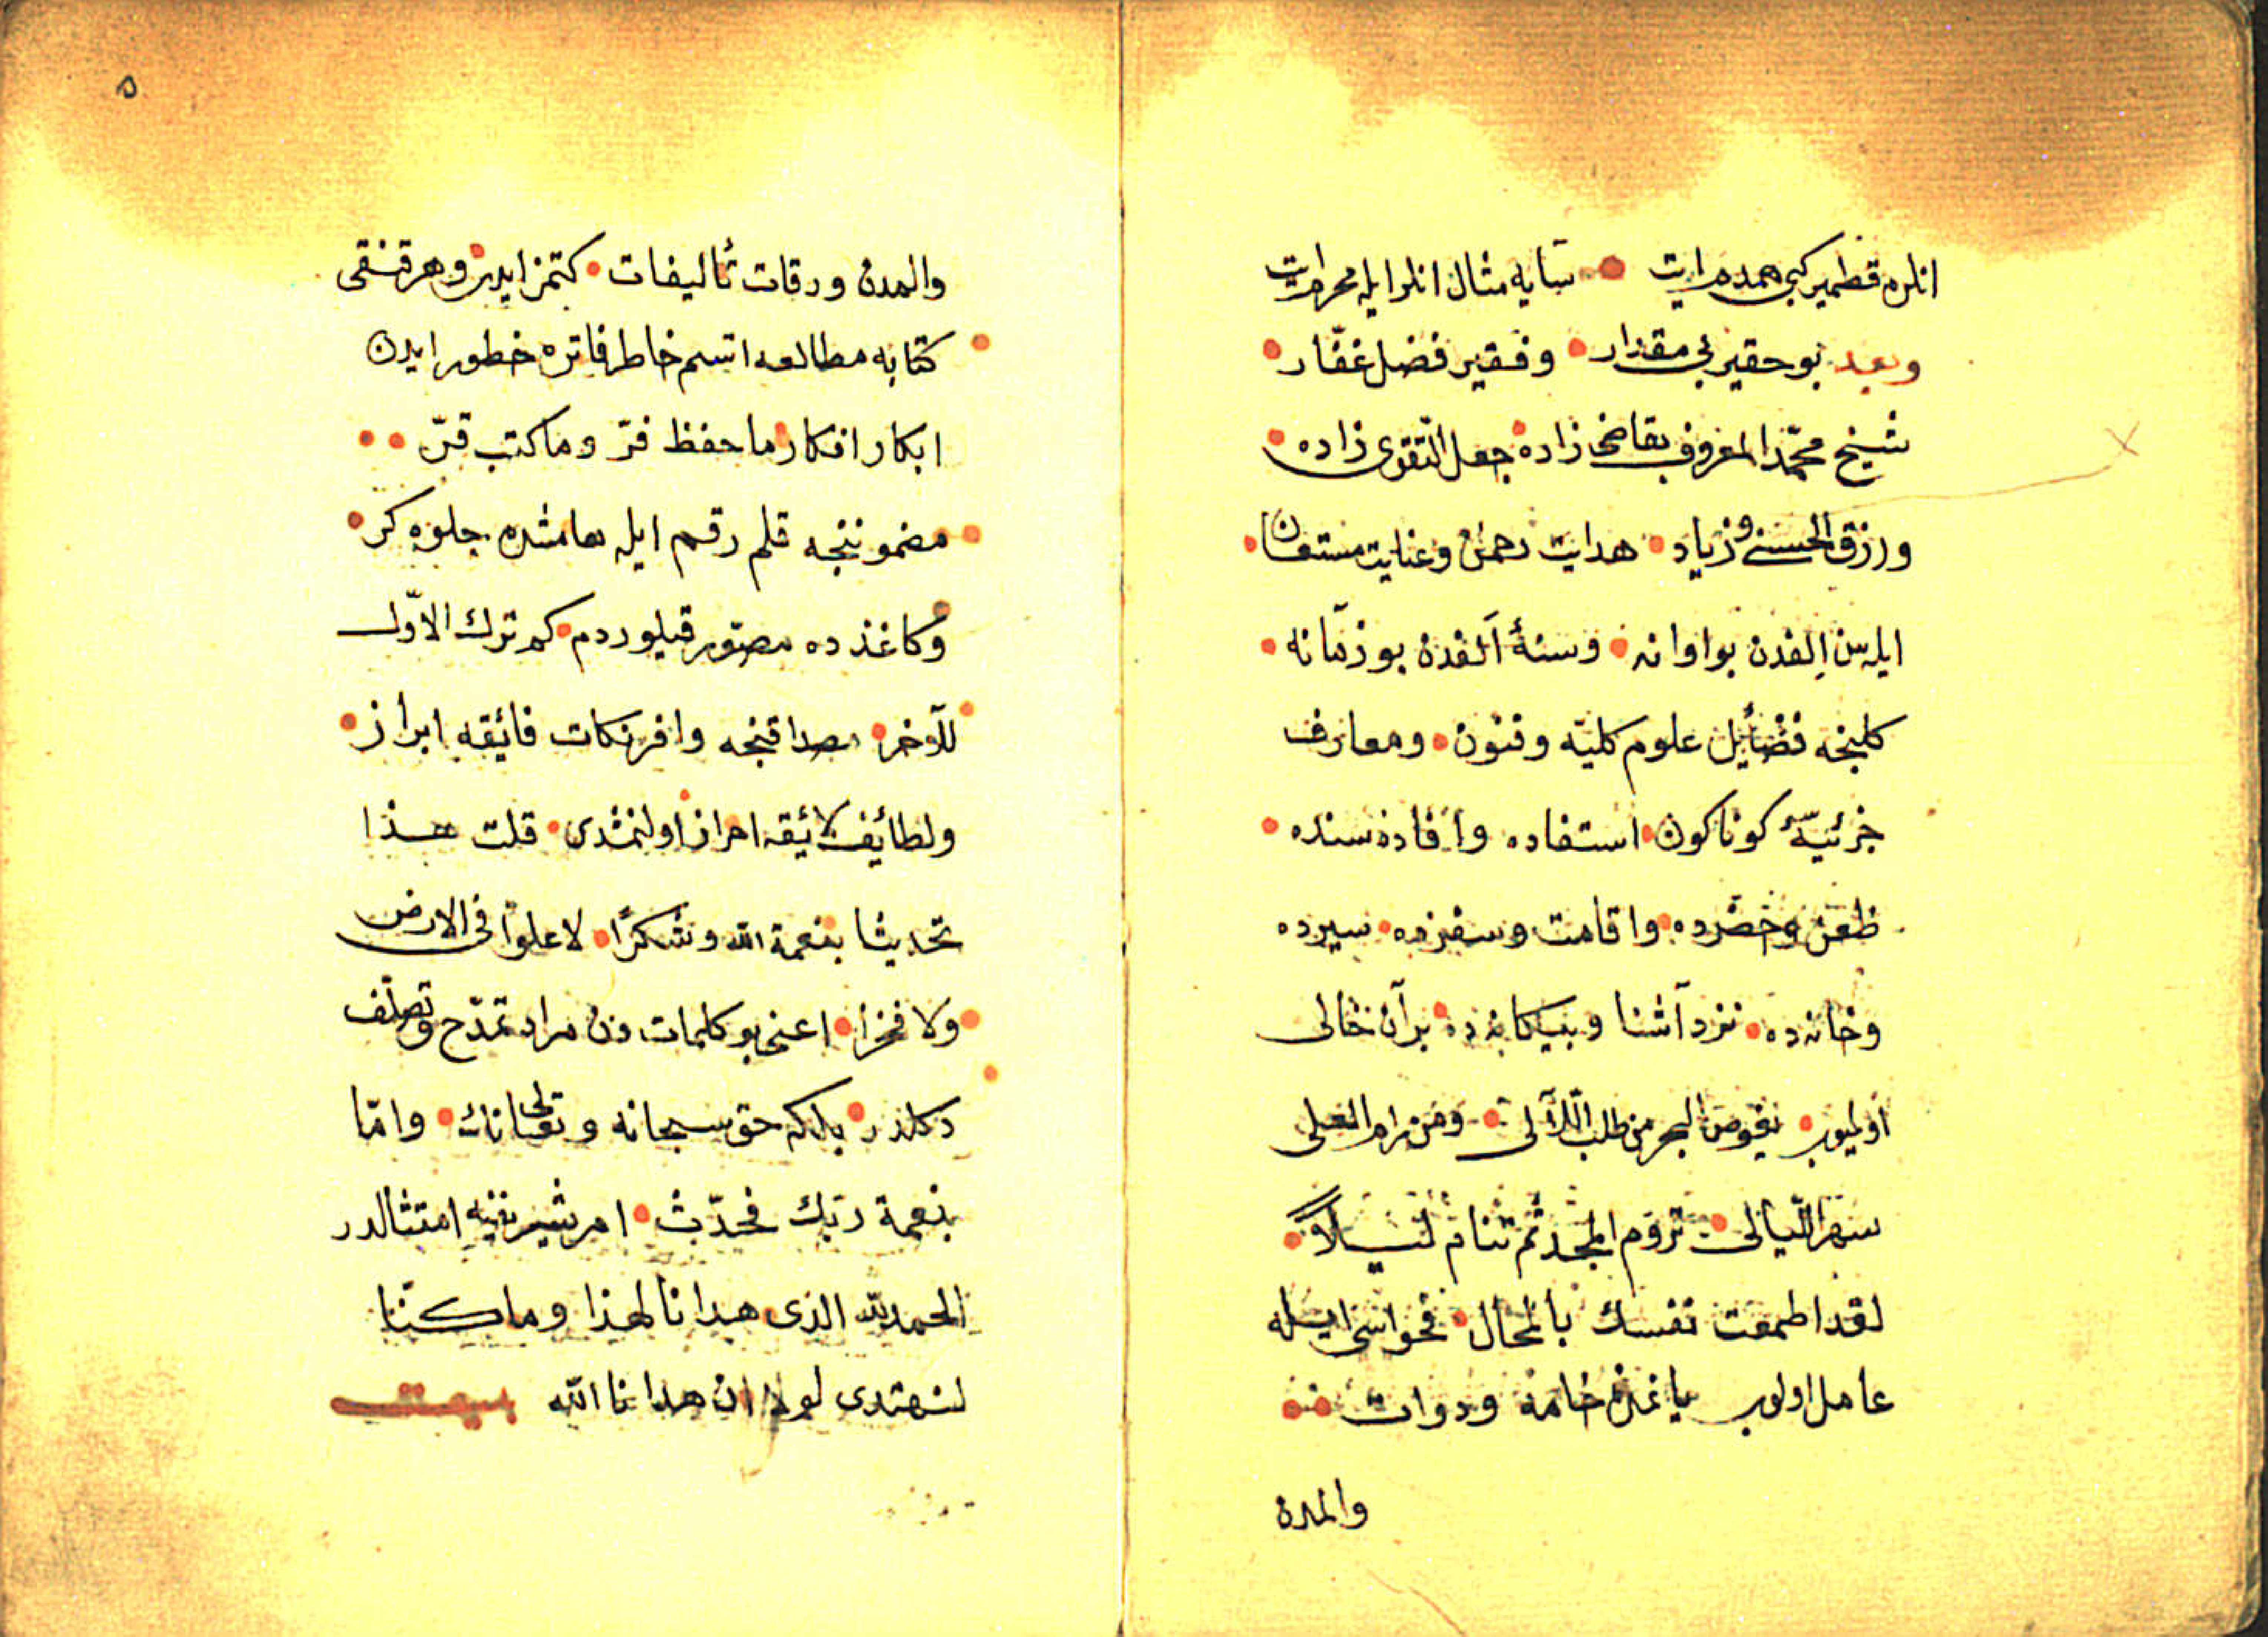 انلره قطمير كبى همدم ايت سايه مثال انلر ايله محرم ايت
وبعد بو حقير بى مقدار وفقير فضل غفّار
شيخ محمّد المعروف بقاضى زاده جعل التّقوى زاده
ورزق الحسنى وزياد هدايت رحمن وعنايت مستعان
ايله سن الفدن بو اوانه وسنهٔ الفدن بو زمانه
كلنجه فضائيل علوم كليّه وفنون ومعارف
جزئيّهٔ كوناكون استفاده وافاده سنده
ظعن وحضرده واقامت وسفرده سيرده
وخانه ده نزد آشنا وبيكانه ده بر آن خالى
اولميوب يغوص البحر من طلب اللآلى ومن رام العلى
سهر اللّيالى تروم المجد ثم تنام ليلاً
لقد اطمعت نفسك بالمحال فحواسى ايله
عامل اولوب خامه ودوات
والمدن
٥
والمدن ورقات تأليفات كتمز ايدى وهر قنقى
كتابه مطالعه اتسم خاطر فاتره خطور ايدن
ابكار افكار ما حفظ فرّ وما كتب قرّ
مضموننجه قلم رقم ايله هامشده جلوه كر
وكاغذده مصوّر قيلوردم كم ترك الاوّل
للآخر مصداقنجه وافر نكات فائقه ابراز
ولطائف لائقه احراز اولنمشدى قلت هذا
تحديثا بنعمة الله وشكرًا لا علوا فى الارض
ولا فخرا اعنى بو كلمات دن مراد تمدّح وتصلّف
دكلدر بلكه حق سبحانه وتعالى نك وامّا
بنعمة ربّك فحدّث امر شريفنه امتثالدر
الحمد لله الذى هدانا لهذا وما كنّا
لنهتدى لولا ان هدانا الله